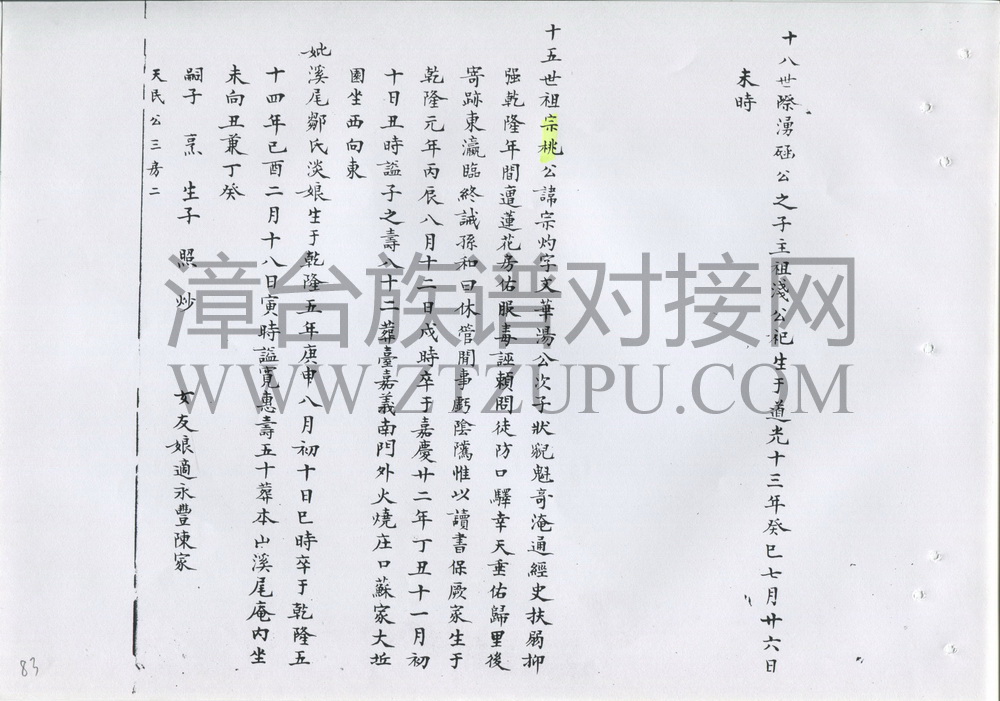 十八世際湧砡公之子主祖淺公祀生于道光十三年癸巳七月廿六日
未時
十五世祖宗桃公諱宗灼字文華湯公次子狀貌魁哥淹通經史扶弱抑
强乾隆年間遭蓮花房佑服毒誣賴問徒防口驛幸天垂佑歸里後
寄跡東瀛臨終誡孫和曰休管閒事虧陰隲惟以讀書保厥家生于
乾隆元年丙辰八月十二日戍時卒于嘉慶廿二年丁丑十一月初
十日丑時謚子之壽八十二葬臺嘉義南門外火燒庄口蘇家大坵
園坐西向東
妣溪尾鄒氏淡娘生于乾隆五年庚申八月初十日巳時卒于乾隆五
十四年己酉二月十八日寅時謚寬惠壽五十葬本山溪尾庵內坐
未向丑兼丁癸
嗣子 烹 生子 照 炒 女友娘適永豐陳家
天民公三房二
83
漳台族谱对接网
WWW.ZTZUPU.COM